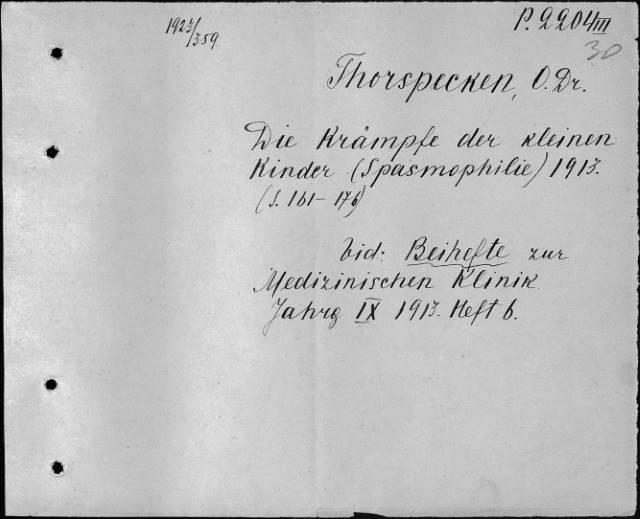 1923/359.
P. 2204 III
30
Thorspecken, O. Dr.
Die Krämpfe der kleinen
Kinder (Spasmophilie) 1913.
(S. 161-176)
vid: Beihefte zur
Medizinischen Klinik.
Jahrg IX 1913. Heft 6.